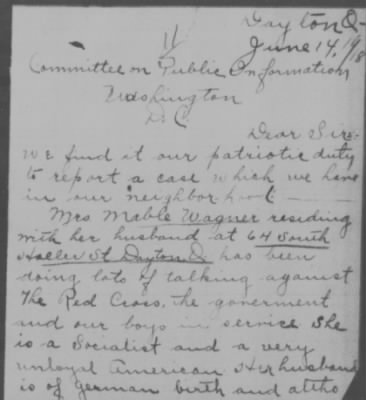 Dayton O-
11
June 14, 1918
Committee on Public Information
Washington
D.C
Dear Sirs-
We find it our patriotic duty
to report a case which we have
in our neighbor hood -
Mrs Mable Wagner residing
with her husband at 64 South
St Dayton O has been
doing lots of talking against
The Red Cross. The goverment
and our boys in service She
is a Socialist and a very
unloyal American Her husband
is of German birth and altho